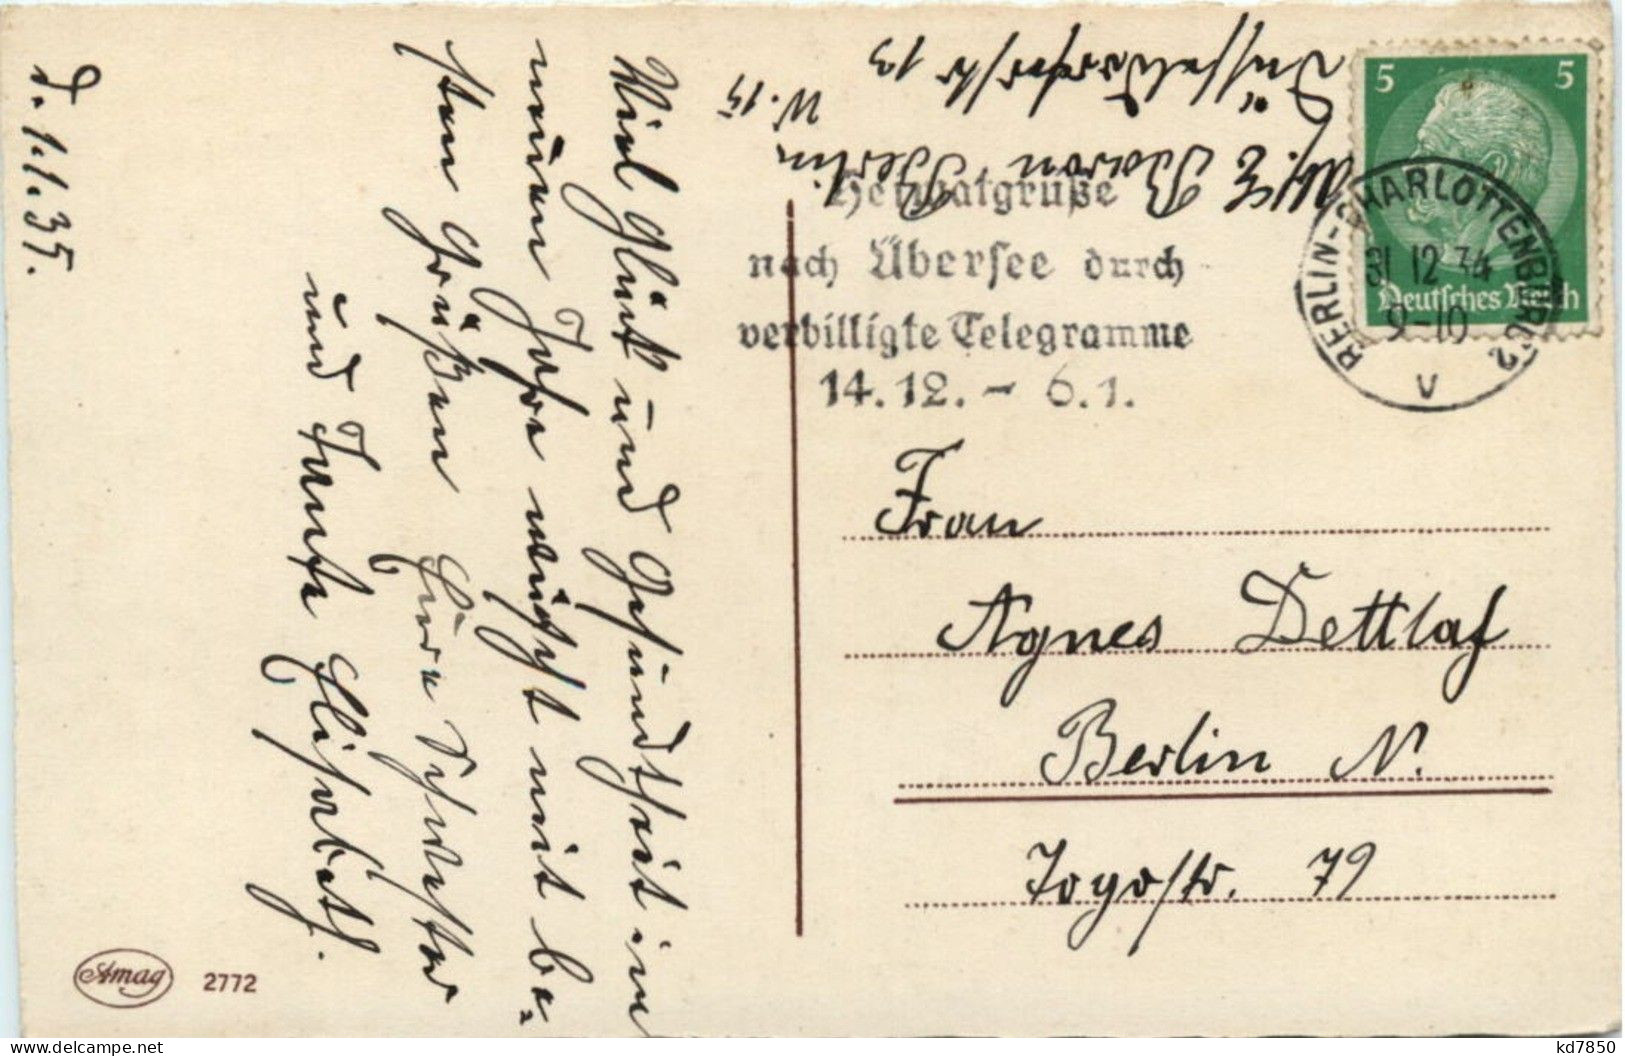 d. 1.1.35.
Viel Glück und Gesundheit im
neuen Jahre wünscht mit be=
sten Grüßen Eure Schwester
und Tante Elisabeth.
Baron Berlin W. 15
Düsseldorferstr 13
5 5
Deutsches Reich
BERLIN-CHARLOTTENBURG 2
31.12.34
9-10
V
Heimatgrüße
nach Übersee durch
verbilligte Telegramme
14.12. - 6.1.
Frau
Agnes Dettlaf
Berlin N.
Togostr. 79
Amag 2772
kd7850